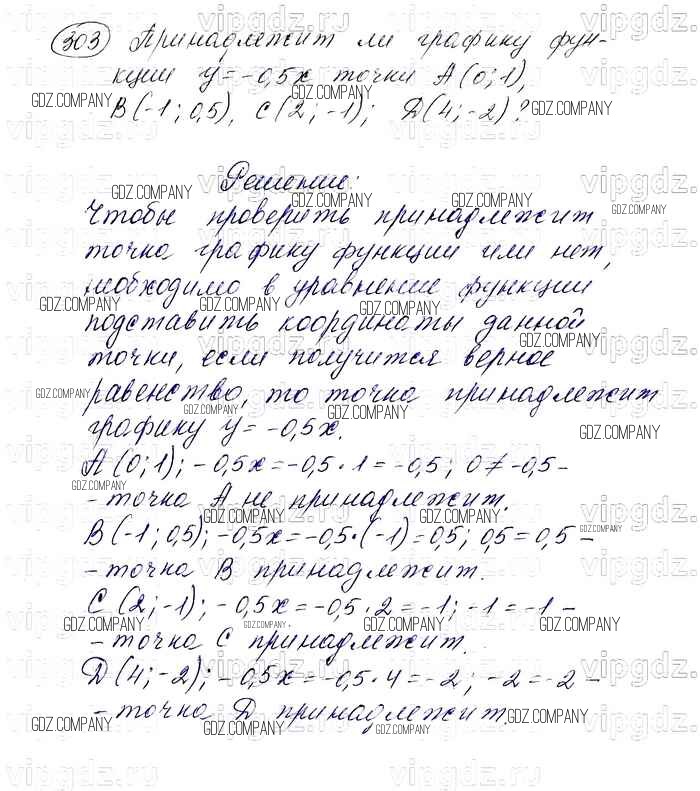 303 Принадлежит ли графику фун-
кции y = -0,5x точки A(0; 1),
B(-1; 0,5), C(2; -1); D(4; -2)?
Решение:
Чтобы проверить принадлежит
точка графику функции или нет,
необходимо в уравнение функции
подставить координаты данной
точки, если получится верное
равенство, то точка принадлежит
графику y = -0,5x.
A(0; 1); -0,5x = -0,5 · 1 = -0,5; 0 ≠ -0,5 -
- точка A не принадлежит.
B(-1; 0,5); -0,5x = -0,5 · (-1) = 0,5; 0,5 = 0,5 -
- точка B принадлежит.
C(2; -1); -0,5x = -0,5 · 2 = -1; -1 = -1 -
- точка C принадлежит.
D(4; -2); -0,5x = -0,5 · 4 = -2; -2 = -2 -
- точка D принадлежит.